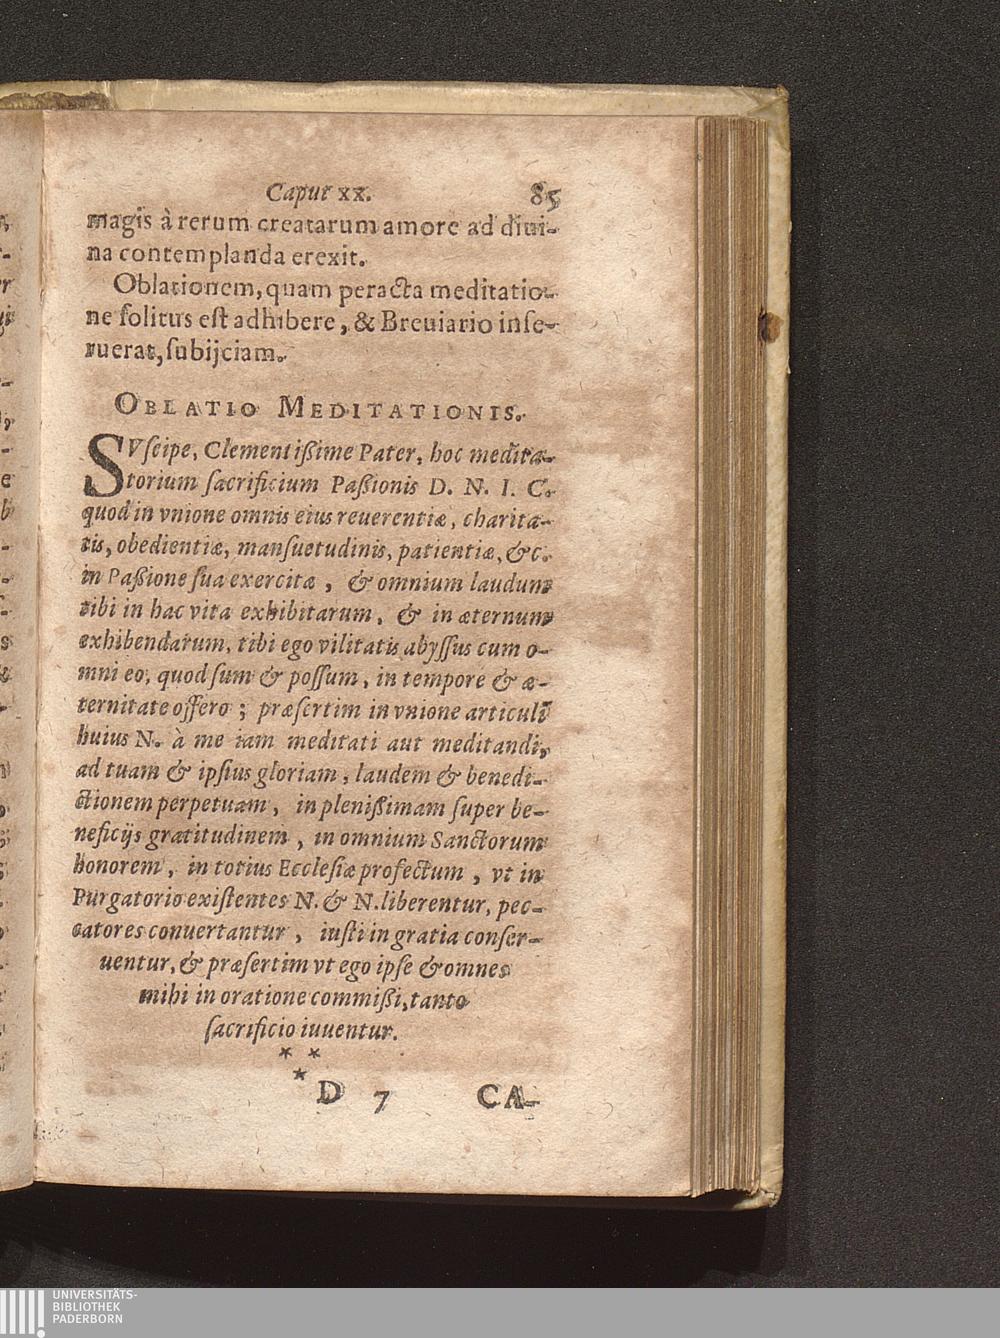 Caput xx. 85
magis à rerum creatarum amore ad diui-
na contemplanda erexit.
Oblationem, quam peracta meditatio-
ne ſolitus eſt adhibere, & Breuiario inſe-
ruerat, ſubijciam.
OBLATIO MEDITATIONIS.
SVſcipe, Clementißime Pater, hoc medita-
torium ſacrificium Paßionis D. N. I. C.
quod in vnione omnis eius reuerentiæ, charita-
tis, obedientiæ, manſuetudinis, patientiæ, &c.
in Paßione ſua exercitæ, & omnium laudum
tibi in hac vita exhibitarum, & in æternum
exhibendarum, tibi ego vilitatis abyſſus cum o-
mni eo, quod ſum & poſſum, in tempore & æ-
ternitate offero; præſertim in vnione articuli
huius N. à me iam meditati aut meditandi,
ad tuam & ipſius gloriam, laudem & benedi-
ctionem perpetuam, in plenißimam ſuper be-
neficijs gratitudinem, in omnium Sanctorum
honorem, in totius Eccleſiæ profectum, vt in
Purgatorio exiſtentes N. & N. liberentur, pec-
catores conuertantur, iuſti in gratia conſer-
uentur, & præſertim vt ego ipſe & omnes
mihi in oratione commißi, tanto
ſacrificio iuuentur.
* *
*
D 7 CA-
UNIVERSITÄTS-
BIBLIOTHEK
PADERBORN